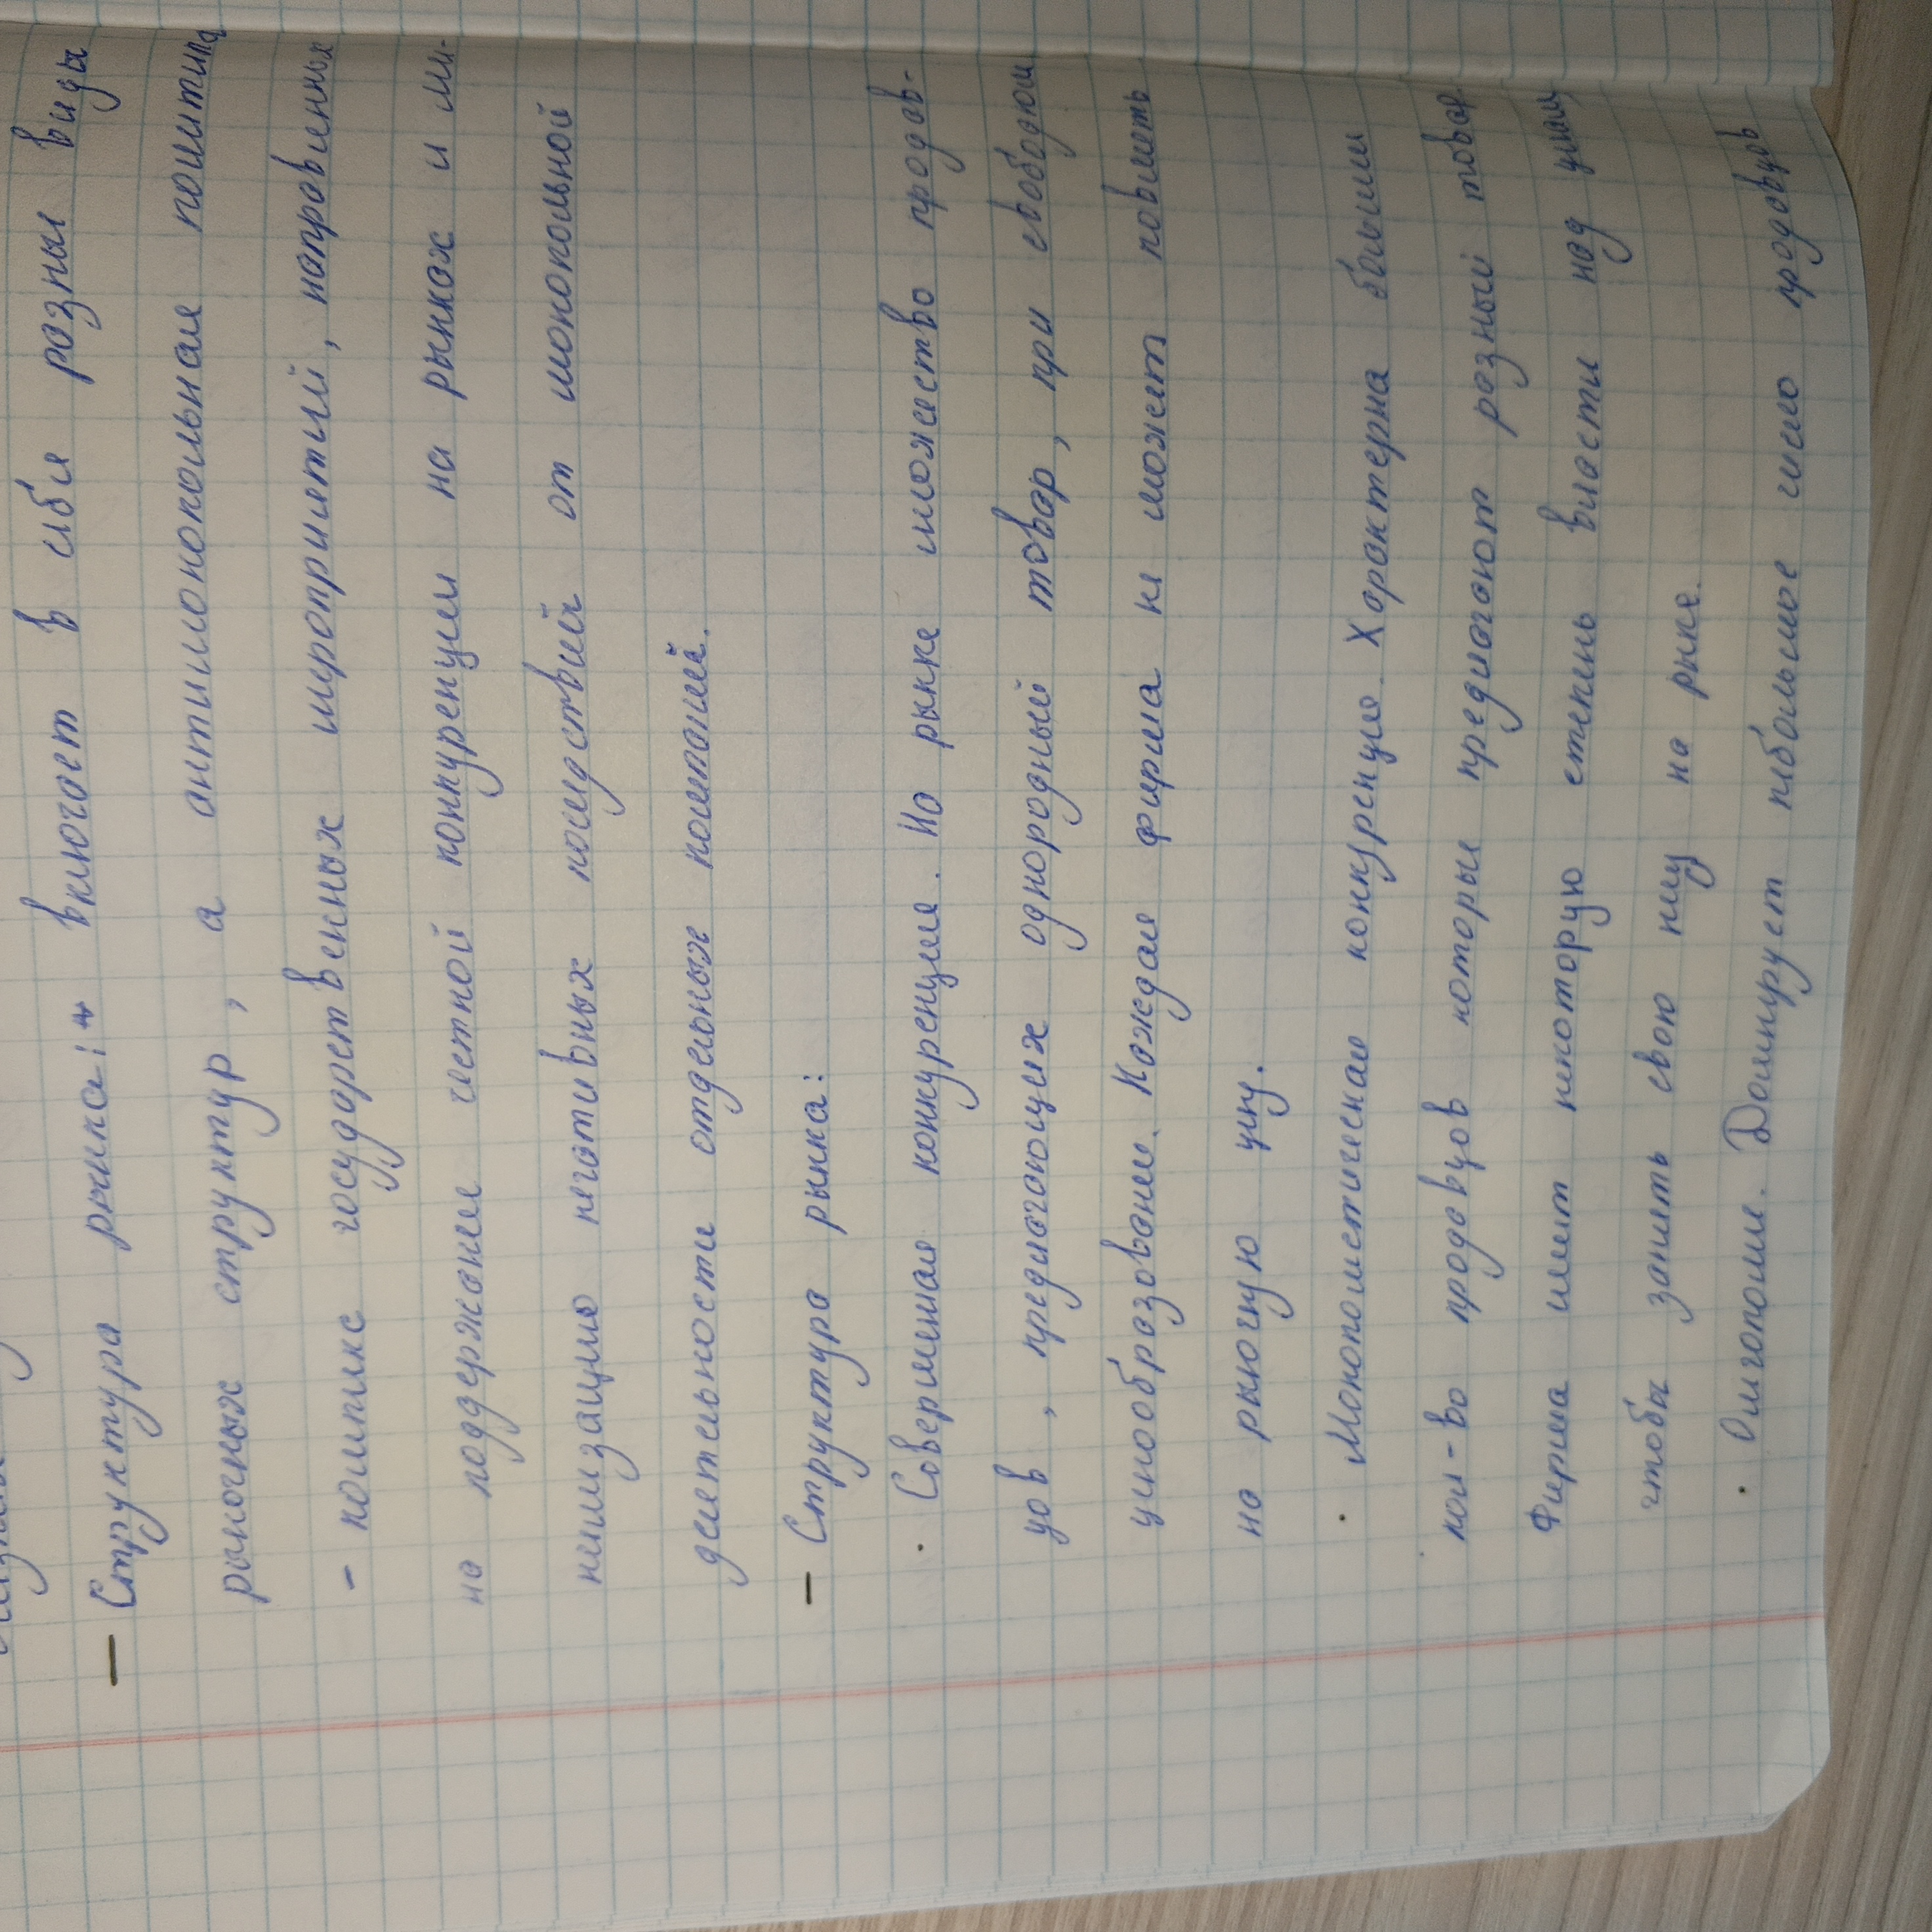 – Структура рынка: включает в себя разные виды
рыночных структур, а антимонопольная политика
– комплекс государственных мероприятий, направленных
на поддержание честной конкуренции на рынках и ми-
нимизацию негативных последствий от монопольной
деятельности отдельных компаний.
– Структура рынка:
· Совершенная конкуренция. На рынке множество продав-
цов, предлагающих однородный товар, при свободном
ценообразовании. Каждая фирма не может повлиять
на рыночную цену.
· Монополистическая конкуренция. Характерна большим
кол-во продавцов которые предлагают разный товар.
Фирма имеет некоторую степень власти над ценами,
чтобы занять свою нишу на рынке.
· Олигополия. Доминирует небольшое число продавцов